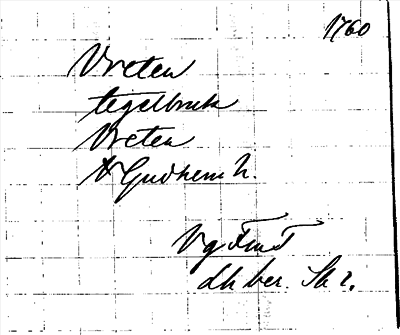 1760
Vreten
tegelbruk
Vreten
Gudhem h.
Vg FmT
dh ber. Sk 2.